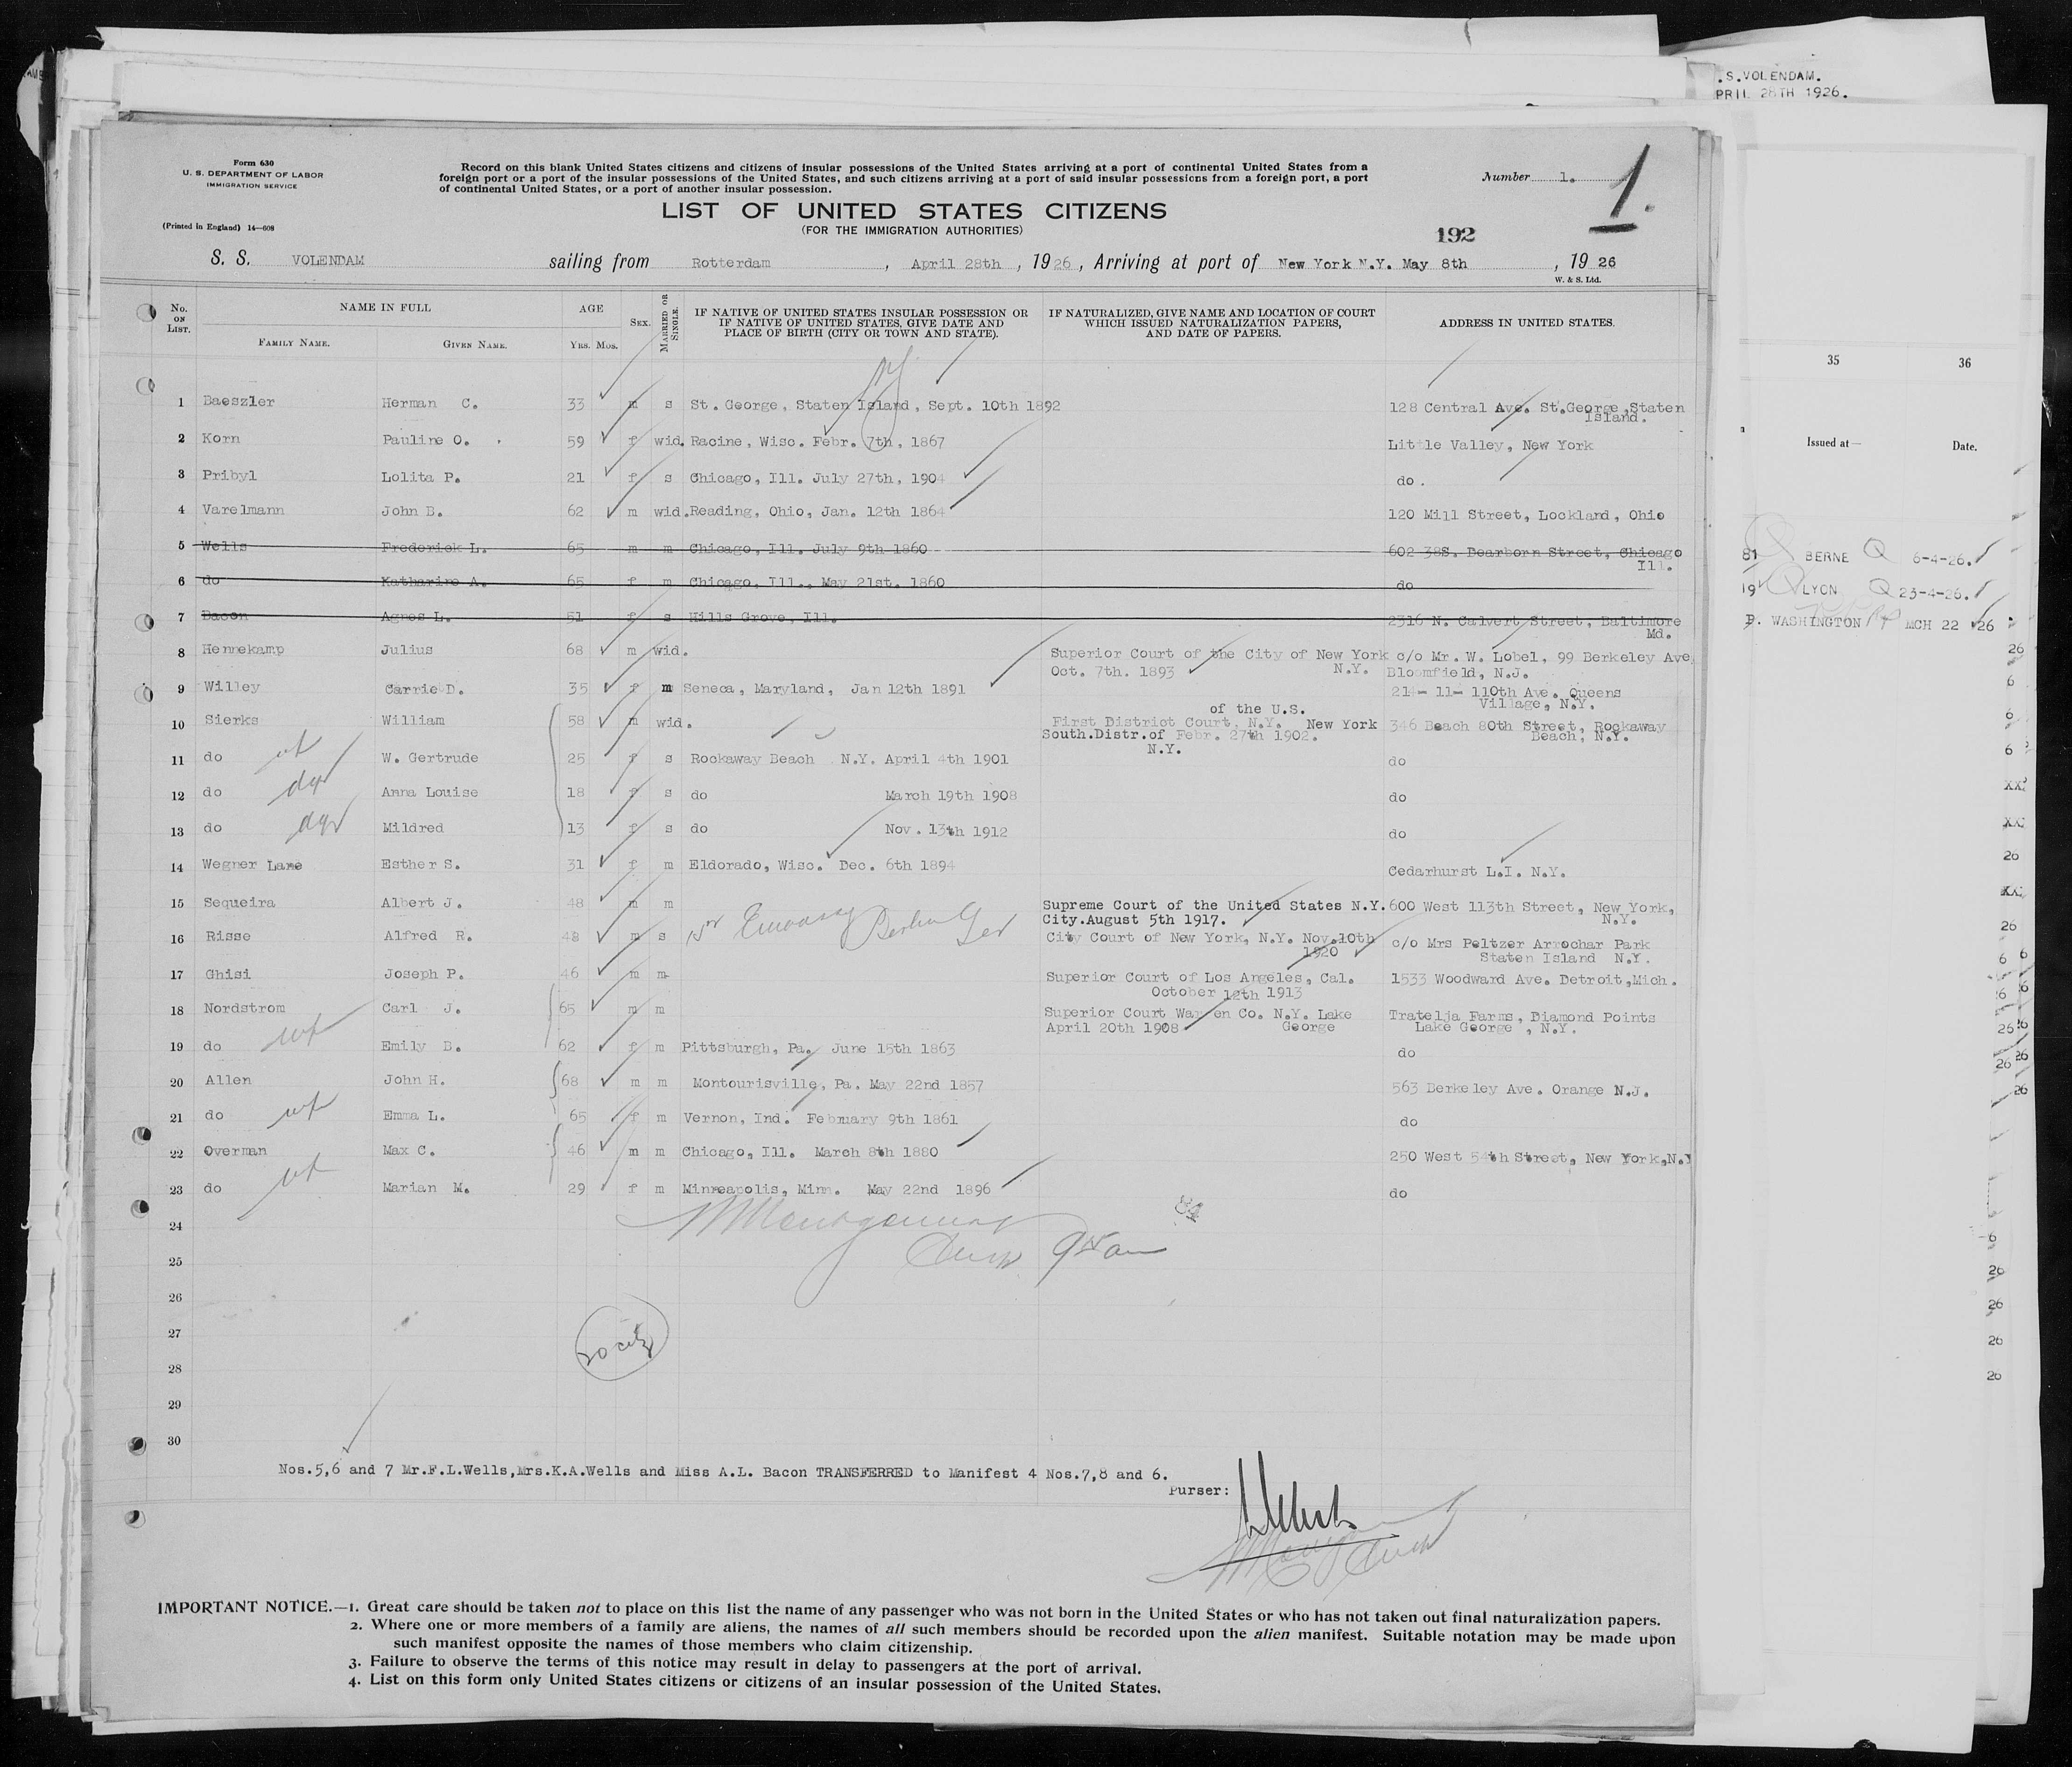 .S.VOLENDAM.
PRIL 28TH 1926.
Form 630
U. S. DEPARTMENT OF LABOR
IMMIGRATION SERVICE
(Printed in England) 14—608
Record on this blank United States citizens and citizens of insular possessions of the United States arriving at a port of continental United States from a
foreign port or a port of the insular possessions of the United States, and such citizens arriving at a port of said insular possessions from a foreign port, a port
of continental United States, or a port of another insular possession.
Number 1.
1.
LIST OF UNITED STATES CITIZENS
(FOR THE IMMIGRATION AUTHORITIES)
192
S. S. VOLENDAM sailing from Rotterdam , April 28th , 1926 , Arriving at port of New York N.Y. May 8th , 1926
W. & S. Ltd.
No. ON LIST. NAME IN FULL FAMILY NAME. GIVEN NAME. AGE YRS. MOS. SEX. MARRIED OR SINGLE. IF NATIVE OF UNITED STATES INSULAR POSSESSION OR IF NATIVE OF UNITED STATES, GIVE DATE AND PLACE OF BIRTH (CITY OR TOWN AND STATE). IF NATURALIZED, GIVE NAME AND LOCATION OF COURT WHICH ISSUED NATURALIZATION PAPERS, AND DATE OF PAPERS. ADDRESS IN UNITED STATES.
1 Baeszler Herman C. 33 m s St. George, Staten Island, Sept. 10th 1892 128 Central Ave. St.George,Staten Island.
2 Korn Pauline O. 59 f wid. Racine, Wisc. Febr. 7th, 1867 Little Valley, New York
3 Pribyl Lolita P. 21 f s Chicago, Ill. July 27th, 1904 do.
4 Varelmann John B. 62 m wid. Reading, Ohio, Jan. 12th 1864 120 Mill Street, Lockland, Ohio
5 Wells Frederick L. 65 m m Chicago, Ill. July 9th 1860 602 38S. Dearborn Street, Chicago Ill.
6 do Katharine A. 65 f m Chicago, Ill., May 21st. 1860 do
7 Bacon Agnes L. 51 f s Hills Grove, Ill. 2316 N. Calvert Street, Baltimore Md.
8 Hennekamp Julius 68 m wid. Superior Court of the City of New York N.Y. Oct. 7th. 1893 c/o Mr. W. Lobel, 99 Berkeley Ave Bloomfield, N.J.
9 Willey Carrie D. 35 f m Seneca, Maryland, Jan 12th 1891 214- 11- 110th Ave. Queens Village, N.Y.
10 Sierks William 58 m wid. of the U.S. First District Court, N.Y. New York South.Distr.of Febr. 27th 1902. N.Y. 346 Beach 80th Street, Rockaway Beach, N.Y.
11 do W. Gertrude 25 f s Rockaway Beach N.Y. April 4th 1901 do
12 do Anna Louise 18 f s do March 19th 1908 do
13 do Mildred 13 f s do Nov. 13th 1912 do
14 Wegner Lane Esther S. 31 f m Eldorado, Wisc. Dec. 6th 1894 Cedarhurst L.I. N.Y.
15 Sequeira Albert J. 48 m m Supreme Court of the United States N.Y. City.August 5th 1917. 600 West 113th Street, New York, N.Y.
Embassy Berlin Ger
16 Risse Alfred R. 48 m s City Court of New York, N.Y. Nov.10th 1920 c/o Mrs Peltzer Arrochar Park Staten Island N.Y.
17 Ghisi Joseph P. 46 m m Superior Court of Los Angeles, Cal. October 12th 1913 1533 Woodward Ave. Detroit,Mich.
18 Nordstrom Carl J. 65 m m Superior Court Warren Co. N.Y. Lake George April 20th 1908 Tratelja Farms, Diamond Points Lake George, N.Y.
19 do wf Emily B. 62 f m Pittsburgh, Pa. June 15th 1863 do
20 Allen John H. 68 m m Montourisville, Pa. May 22nd 1857 563 Berkeley Ave. Orange N.J.
21 do wf Emma L. 65 f m Vernon, Ind. February 9th 1861 do
22 Overman Max C. 46 m m Chicago, Ill. March 8th 1880 250 West 54th Street, New York,N.Y
23 do wf Marian M. 29 f m Minneapolis, Minn. May 22nd 1896 do
24
25
26
27
28
29
30
Nos.5,6 and 7 Mr.F.L.Wells,Mrs.K.A.Wells and Miss A.L. Bacon TRANSFERRED to Manifest 4 Nos.7,8 and 6.
Purser:
IMPORTANT NOTICE.—1. Great care should be taken not to place on this list the name of any passenger who was not born in the United States or who has not taken out final naturalization papers.
2. Where one or more members of a family are aliens, the names of all such members should be recorded upon the alien manifest. Suitable notation may be made upon
such manifest opposite the names of those members who claim citizenship.
3. Failure to observe the terms of this notice may result in delay to passengers at the port of arrival.
4. List on this form only United States citizens or citizens of an insular possession of the United States.
35 36
Issued at— Date.
BERNE 6-4-26.
LYON 23-4-26.
WASHINGTON MCH 22 26